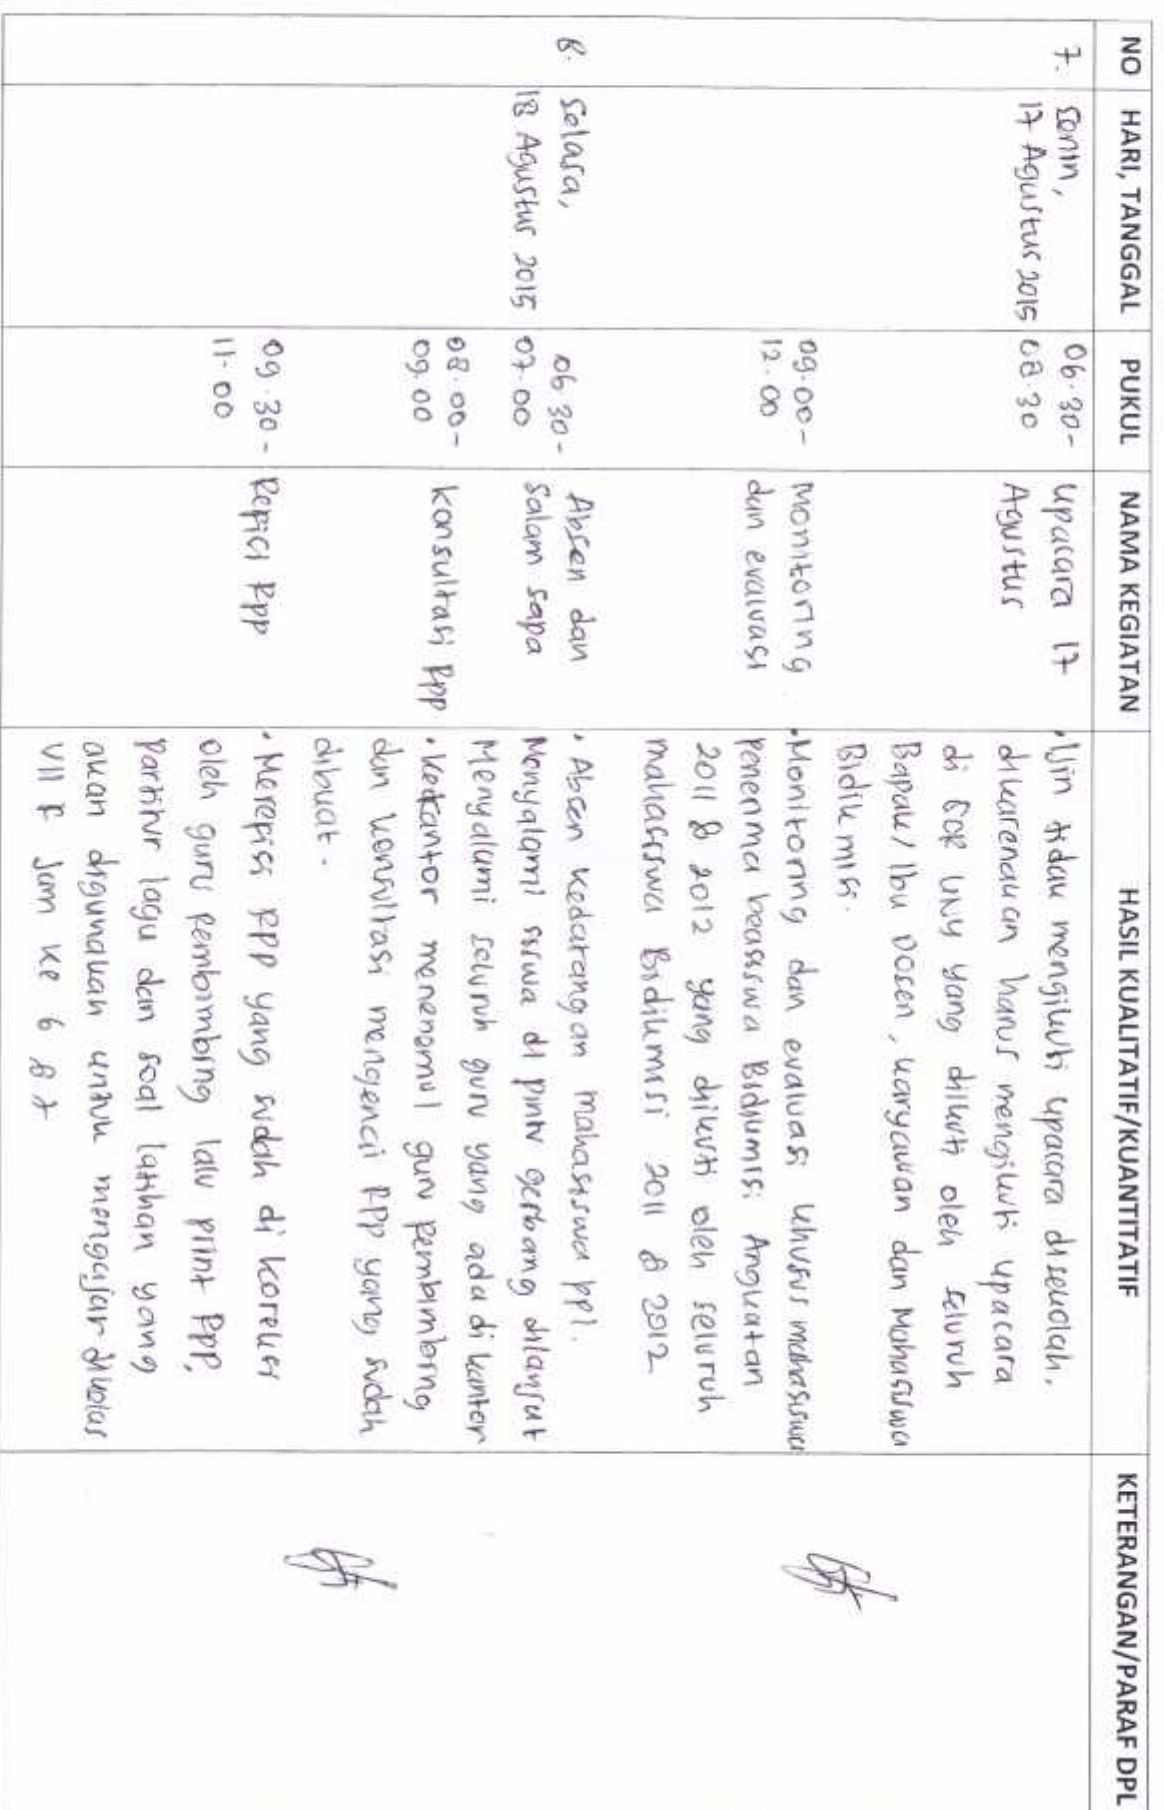 NO HARI, TANGGAL PUKUL NAMA KEGIATAN HASIL KUALITATIF/KUANTITATIF KETERANGAN/PARAF DPL
7. Senin, 06.30- Upacara 17 • Ijin tidak mengikuti upacara disekolah,
17 Agustus 2015 08.30 Agustus dikarenakan harus mengikuti upacara
di GOR UNY yang diikuti oleh seluruh
Bapak/Ibu Dosen, karyawan dan Mahasiswa
Bidikmisi.
09.00- Monitoring • Monitoring dan evaluasi khusus mahasiswa
12.00 dan evaluasi penerima beasiswa Bidikmisi Angkatan
2011 & 2012 yang diikuti oleh seluruh
mahasiswa Bidikmisi 2011 & 2012
8. Selasa, 06.30- Absen dan • Absen kedatangan mahasiswa ppl.
18 Agustus 2015 07.00 Salam sapa Menyalami siswa di pintu gerbang dilanjut
Menyalami seluruh guru yang ada di kantor
08.00- Konsultasi Rpp • Kekantor menemui guru pembimbing
09.00 dan konsultasi mengenai RPP yang sudah
dibuat.
09.30- Repici Rpp • Merepisi RPP yang sudah di koreksi
11.00 oleh guru pembimbing lalu print Rpp,
partitur lagu dan soal latihan yang
akan digunakan untuk mengajar dikelas
VII F Jam ke 6 & 7